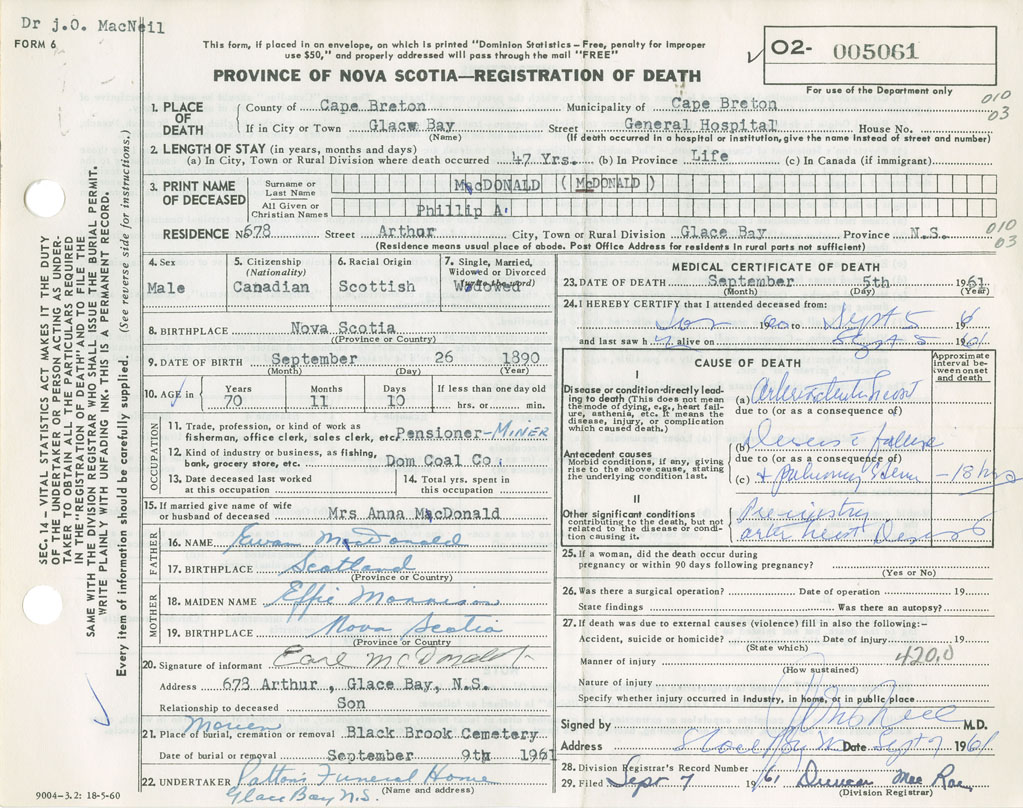 Dr j.O. MacNeil
FORM 6
This form, if placed in an envelope, on which is printed "Dominion Statistics – Free, penalty for improper
use $50," and properly addressed will pass through the mail "FREE"
O2- 005061
For use of the Department only
PROVINCE OF NOVA SCOTIA—REGISTRATION OF DEATH
1. PLACE OF DEATH
County of Cape Breton Municipality of Cape Breton 010
If in City or Town Glace Bay Street General Hospital House No. 03
(Name) (If death occurred in a hospital or institution, give the name instead of street and number)
2. LENGTH OF STAY (in years, months and days)
(a) In City, Town or Rural Division where death occurred 47 Yrs. (b) In Province Life (c) In Canada (if immigrant)
3. PRINT NAME OF DECEASED
Surname or Last Name MacDONALD (McDONALD)
All Given or Christian Names Phillip A.
RESIDENCE No 678 Street Arthur City, Town or Rural Division Glace Bay Province N.S. 010
03
(Residence means usual place of abode. Post Office Address for residents in rural parts not sufficient)
4. Sex
Male
5. Citizenship
(Nationality)
Canadian
6. Racial Origin
Scottish
7. Single, Married,
Widowed or Divorced
Widowed
8. BIRTHPLACE Nova Scotia
(Province or Country)
9. DATE OF BIRTH September 26 1890
(Month) (Day) (Year)
10. AGE in Years Months Days If less than one day old
70 11 10 hrs. or min.
OCCUPATION
11. Trade, profession, or kind of work as
fisherman, office clerk, sales clerk, etc. Pensioner-MINER
12. Kind of industry or business, as fishing,
bank, grocery store, etc. Dom Coal Co.
13. Date deceased last worked
at this occupation
14. Total yrs. spent in
this occupation
15. If married give name of wife
or husband of deceased Mrs Anna MacDonald
FATHER
16. NAME Ewan MacDonald
17. BIRTHPLACE Scotland
(Province or Country)
MOTHER
18. MAIDEN NAME Effie Morrison
19. BIRTHPLACE Nova Scotia
(Province or Country
20. Signature of informant Earl McDonald
Address 678 Arthur, Glace Bay, N.S.
Relationship to deceased Son
21. Place of burial, cremation or removal Black Brook Cemetery
Date of burial or removal September 9th 1961
22. UNDERTAKER Patton's Funeral Home
(Name and address)
Glace Bay N.S.
9004-3.2: 18-5-60
MEDICAL CERTIFICATE OF DEATH
23. DATE OF DEATH September 5th 1961
(Month) (Day) (Year)
24. I HEREBY CERTIFY that I attended deceased from:
19 60 to Sept 5 196
and last saw h alive on Sept 5 1961
CAUSE OF DEATH
Approximate
interval be-
tween onset
and death
I
Disease or condition directly lead-
ing to death (This does not mean
the mode of dying, e.g., heart fail-
ure, asthenia, etc. It means the
disease, injury, or complication
which caused death.)
(a)
due to (or as a consequence of)
Antecedent causes
Morbid conditions, if any, giving
rise to the above cause, stating
the underlying condition last.
(b) failure
due to (or as a consequence of)
(c) + pulmonary – 18 hrs
II
Other significant conditions
contributing to the death, but not
related to the disease or condi-
tion causing it.
25. If a woman, did the death occur during
pregnancy or within 90 days following pregnancy?
(Yes or No)
26. Was there a surgical operation? Date of operation 19
State findings Was there an autopsy?
27. If death was due to external causes (violence) fill in also the following:-
Accident, suicide or homicide? Date of injury 19
(State which)
Manner of injury 420.0
(How sustained)
Nature of injury
Specify whether injury occurred in industry, in home, or in public place
Signed by M.D.
Address Glace Bay Date Sept 7 1961
28. Division Registrar's Record Number
29. Filed Sept 7 1961 Duncan MacRae
(Division Registrar)
SEC. 14 – VITAL STATISTICS ACT MAKES IT THE DUTY
OF THE UNDERTAKER OR PERSON ACTING AS UNDER-
TAKER TO OBTAIN ALL THE PARTICULARS REQUIRED
IN THE "REGISTRATION OF DEATH" AND TO FILE THE
SAME WITH THE DIVISION REGISTRAR WHO SHALL ISSUE THE BURIAL PERMIT.
WRITE PLAINLY WITH UNFADING INK. THIS IS A PERMANENT RECORD.
Every item of information should be carefully supplied. (See reverse side for instructions.)